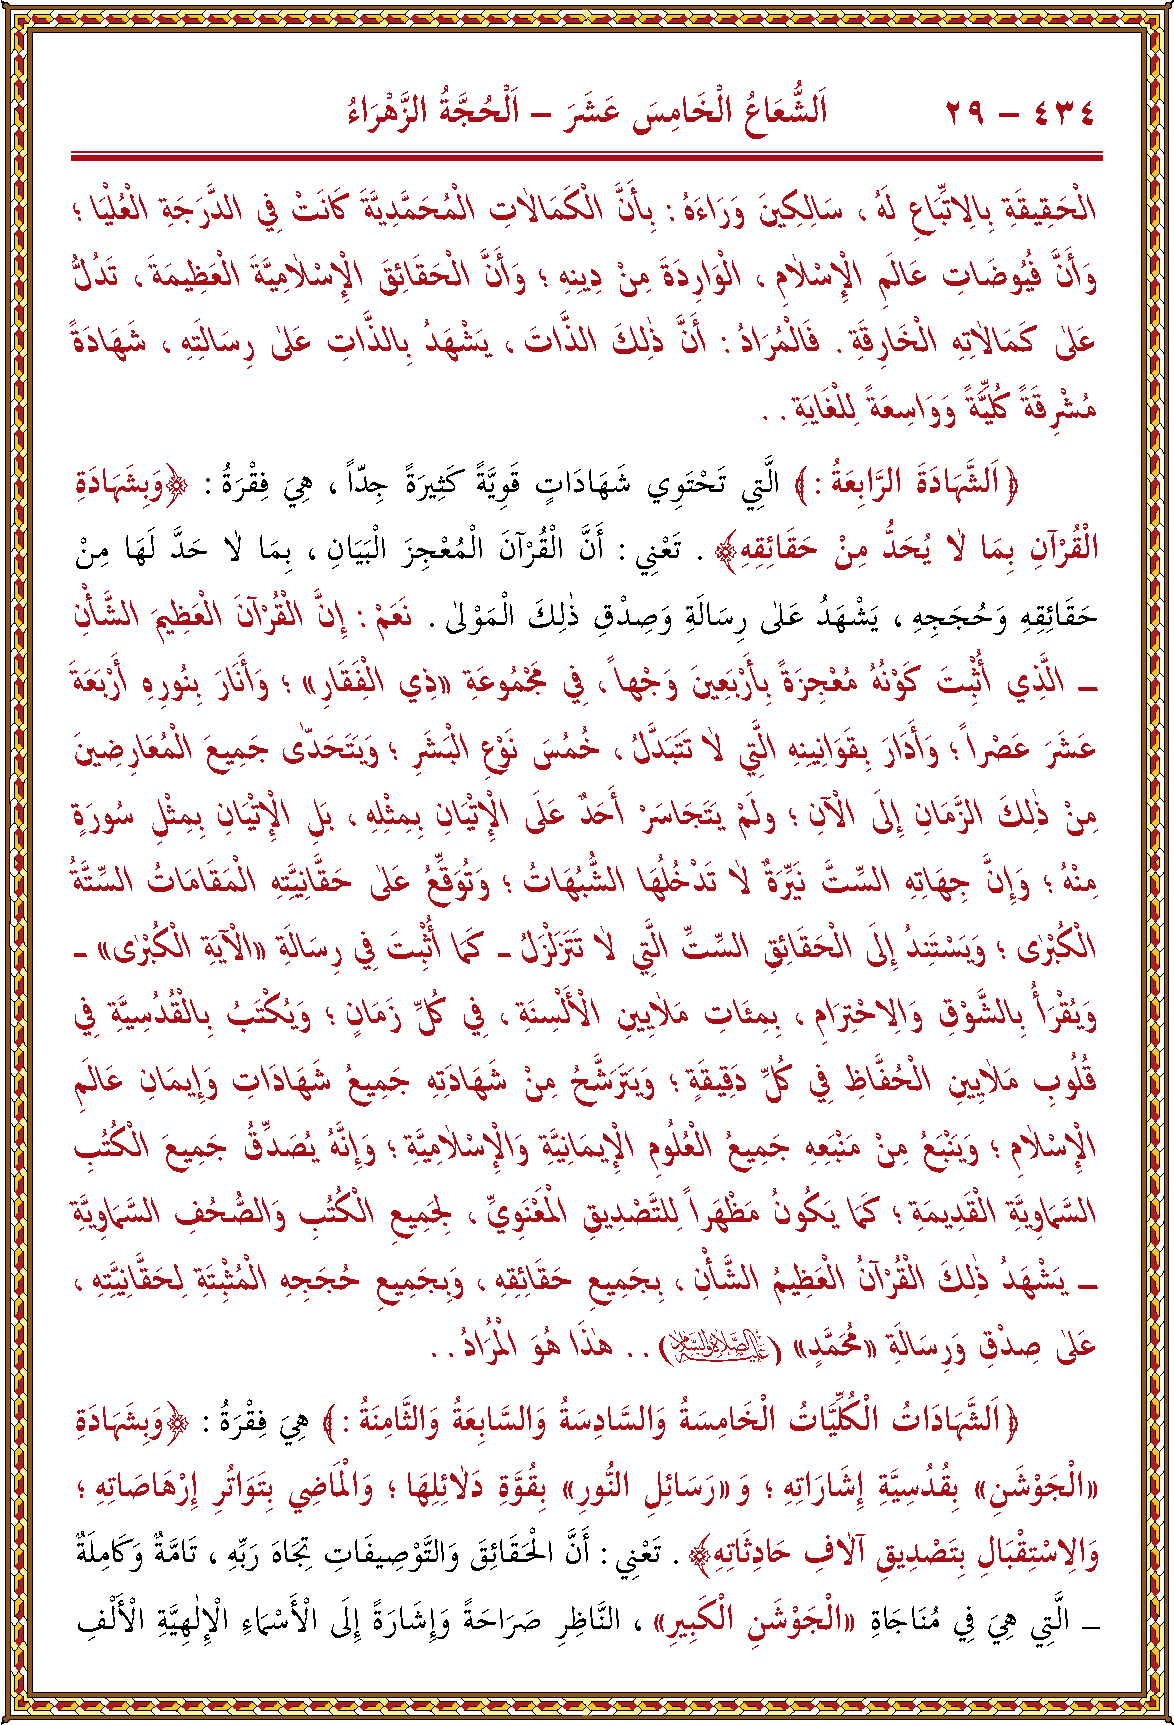 ٤٣٤ – ٢٩ اَلشُّعَاعُ الْخَامِسَ عَشَرَ – اَلْحُجَّةُ الزَّهْرَاءُ
الْحَقِيقَةِ بِالِاتِّبَاعِ لَهُ ، سَالِكِينَ وَرَاءَهُ : بِأَنَّ الْكَمَالَاتِ الْمُحَمَّدِيَّةَ كَانَتْ فِي الدَّرَجَةِ الْعُلْيَا ؛
وَأَنَّ فُيُوضَاتِ عَالَمِ الْإِسْلَامِ ، الْوَارِدَةَ مِنْ دِينِهِ ؛ وَأَنَّ الْحَقَائِقَ الْإِسْلَامِيَّةَ الْعَظِيمَةَ ، تَدُلُّ
عَلٰى كَمَالَاتِهِ الْخَارِقَةِ . فَالْمُرَادُ : أَنَّ ذٰلِكَ الذَّاتَ ، يَشْهَدُ بِالذَّاتِ عَلٰى رِسَالَتِهِ ، شَهَادَةً
مُشْرِقَةً كُلِّيَّةً وَوَاسِعَةً لِلْغَايَةِ . .
﴿اَلشَّهَادَةَ الرَّابِعَةُ :﴾ الَّتِي تَحْتَوِي شَهَادَاتٍ قَوِيَّةً كَثِيرَةً جِدّاً ، هِيَ فِقْرَةُ : ﴿وَبِشَهَادَةِ
الْقُرْآنِ بِمَا لَا يُحَدُّ مِنْ حَقَائِقِهِ﴾ . تَعْنِي : أَنَّ الْقُرْآنَ الْمُعْجِزَ الْبَيَانِ ، بِمَا لَا حَدَّ لَهَا مِنْ
حَقَائِقِهِ وَحُجَجِهِ ، يَشْهَدُ عَلٰى رِسَالَةِ وَصِدْقِ ذٰلِكَ الْمَوْلٰى . نَعَمْ : إِنَّ الْقُرْآنَ الْعَظِيمَ الشَّأْنِ
ـ الَّذِي أُثْبِتَ كَوْنُهُ مُعْجِزَةً بِأَرْبَعِينَ وَجْهاً ، فِي مَجْمُوعَةِ «ذِي الْفَقَارِ» ؛ وَأَنَارَ بِنُورِهِ أَرْبَعَةَ
عَشَرَ عَصْراً ؛ وَأَدَارَ بِقَوَانِينِهِ الَّتِي لَا تَتَبَدَّلُ ، خُمُسَ نَوْعِ الْبَشَرِ ؛ وَيَتَحَدّٰى جَمِيعَ الْمُعَارِضِينَ
مِنْ ذٰلِكَ الزَّمَانِ إِلَى الْآنِ ؛ ولَمْ يَتَجَاسَرْ أَحَدٌ عَلَى الْإِتْيَانِ بِمِثْلِهِ ، بَلِ الْإِتْيَانِ بِمِثْلِ سُورَةٍ
مِنْهُ ؛ وَإِنَّ جِهَاتِهِ السِّتَّ نَيِّرَةٌ لَا تَدْخُلُهَا الشُّبُهَاتُ ؛ وَتُوَقِّعُ عَلٰى حَقَّانِيَّتِهِ الْمَقَامَاتُ السِّتَّةُ
الْكُبْرٰى ؛ وَيَسْتَنِدُ إِلَى الْحَقَائِقِ السِّتِّ الَّتِي لَا تَتَزَلْزَلُ ـ كَمَا أُثْبِتَ فِي رِسَالَةِ «الْآيَةِ الْكُبْرٰى» ـ
وَيُقْرَأُ بِالشَّوْقِ وَالِاحْتِرَامِ ، بِمِئَاتِ مَلَايِينِ الْأَلْسِنَةِ ، فِي كُلِّ زَمَانٍ ؛ وَيُكْتَبُ بِالْقُدُسِيَّةِ فِي
قُلُوبِ مَلَايِينِ الْحُفَّاظِ فِي كُلِّ دَقِيقَةٍ ؛ وَيَتَرَشَّحُ مِنْ شَهَادَتِهِ جَمِيعُ شَهَادَاتِ وَإِيمَانِ عَالَمِ
الْإِسْلَامِ ؛ وَيَنْبَعُ مِنْ مَنْبَعِهِ جَمِيعُ الْعُلُومِ الْإِيمَانِيَّةِ وَالْإِسْلَامِيَّةِ ؛ وَإِنَّهُ يُصَدِّقُ جَمِيعَ الْكُتُبِ
السَّمَاوِيَّةِ الْقَدِيمَةِ ؛ كَمَا يَكُونُ مَظْهَراً لِلتَّصْدِيقِ الْمَعْنَوِيِّ ، لِجَمِيعِ الْكُتُبِ وَالصُّحُفِ السَّمَاوِيَّةِ
ـ يَشْهَدُ ذٰلِكَ الْقُرْآنُ الْعَظِيمُ الشَّأْنِ ، بِجَمِيعِ حَقَائِقِهِ ، وَبِجَمِيعِ حُجَجِهِ الْمُثْبِتَةِ لِحَقَّانِيَّتِهِ ،
عَلٰى صِدْقِ وَرِسَالَةِ «مُحَمَّدٍ» (عَلَيْهِ الصَّلَاةُ وَالسَّلَامُ) . . هٰذَا هُوَ الْمُرَادُ . .
﴿اَلشَّهَادَاتُ الْكُلِّيَّاتُ الْخَامِسَةُ وَالسَّادِسَةُ وَالسَّابِعَةُ وَالثَّامِنَةُ :﴾ هِيَ فِقْرَةُ : ﴿وَبِشَهَادَةِ
«الْجَوْشَنِ» بِقُدُسِيَّةِ إِشَارَاتِهِ ؛ وَ «رَسَائِلِ النُّورِ» بِقُوَّةِ دَلَائِلِهَا ؛ وَالْمَاضِي بِتَوَاتُرِ إِرْهَاصَاتِهِ ؛
وَالِاسْتِقْبَالِ بِتَصْدِيقِ آلَافِ حَادِثَاتِهِ﴾ . تَعْنِي : أَنَّ الْحَقَائِقَ وَالتَّوْصِيفَاتِ تِجَاهَ رَبِّهِ ، تَامَّةٌ وَكَامِلَةٌ
ـ الَّتِي هِيَ فِي مُنَاجَاةِ «الْجَوْشَنِ الْكَبِيرِ» ، النَّاظِرِ صَرَاحَةً وَإِشَارَةً إِلَى الْأَسْمَاءِ الْإِلٰهِيَّةِ الْأَلْفِ